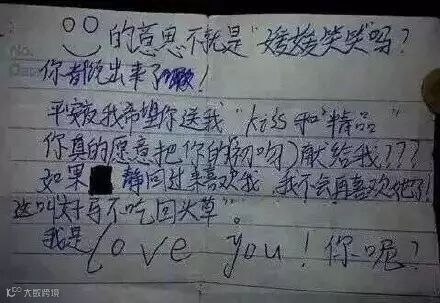 的意思不就是"媛媛笑笑"吗?
No.
Date
你都说出来了嗽!
平安夜我希望你送我"kiss和"精品"
你真的愿意把你的初吻)献给我???
如果 静回过来喜欢我,我不会再喜欢他了!
这叫好马不吃回头草"。
我是love you!你呢?
大数跨境